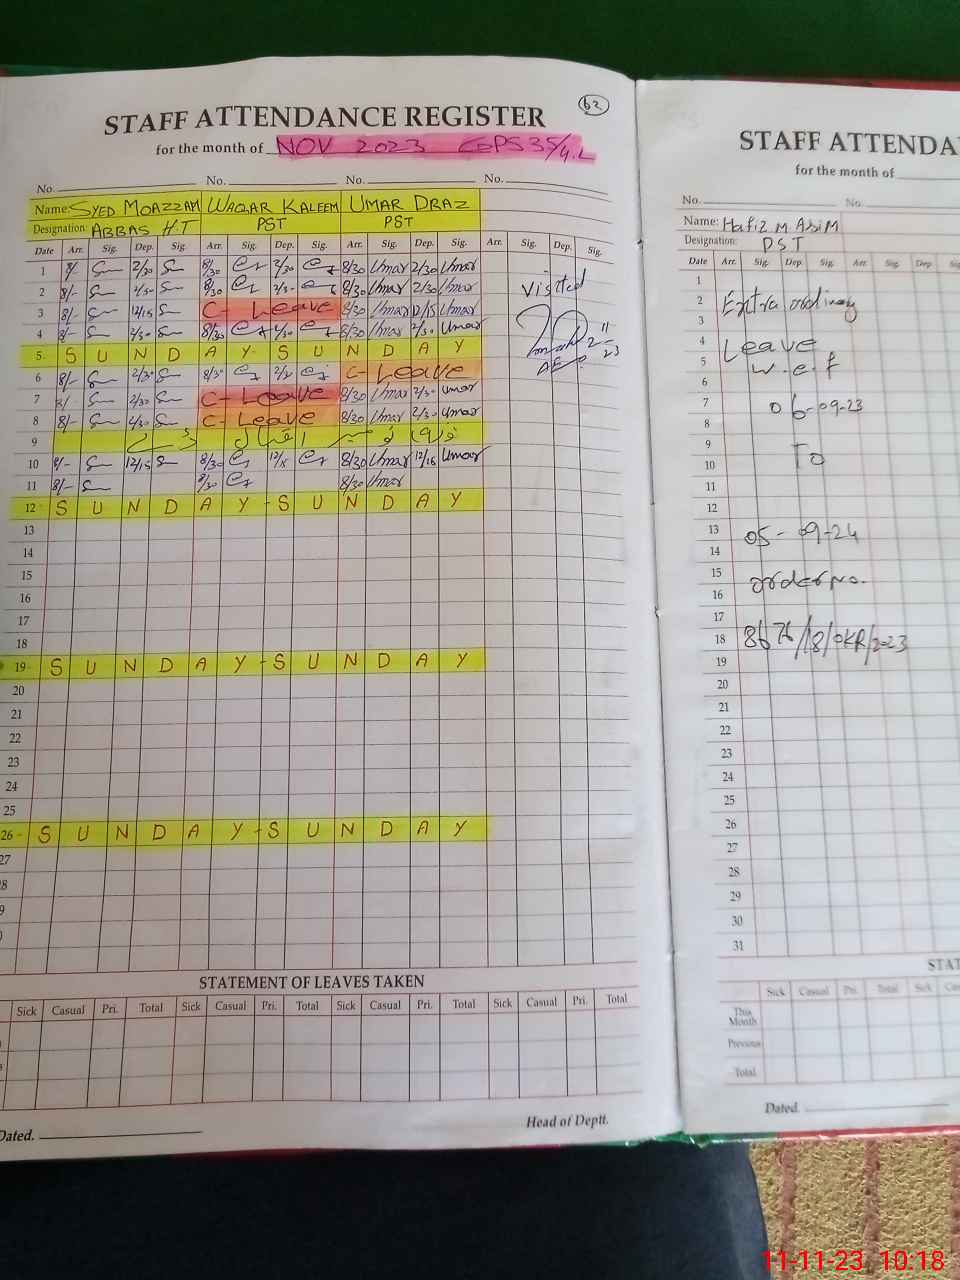 62
STAFF ATTENDANCE REGISTER
for the month of NOV 2023 GPS 35/4.L
No. No. No. No.
Name: SYED MOAZZAM WAQAR KALEEM UMAR DRAZ
Designation: ABBAS H.T PST PST
Date Arr. Sig. Dep. Sig. Arr. Sig. Dep. Sig. Arr. Sig. Dep. Sig. Arr. Sig. Dep. Sig.
1 8/- 2/30 8/30 2/30 8/30 Umar 2/30 Umar
2 8/- 2/30 8/30 2/30 8/30 Umar 2/30 Umar
3 8/- 12/15 C- Leave 8/30 Umar 12/15 Umar
4 8/- 2/30 8/30 2/30 8/30 Umar 2/30 Umar
5 SUNDAY - SUNDAY
6 8/- 2/30 8/30 2/30 C- Leave
7 8/- 2/30 C- Leave 8/30 Umar 2/30 Umar
8 8/- 2/30 C- Leave 8/30 Umar 2/30 Umar
9 اقبال
10 8/- 12/15 8/30 12/15 8/30 Umar 12/15 Umar
11 8/- 8/30 8/30 Umar
12 SUNDAY - SUNDAY
13
14
15
16
17
18
19 SUNDAY - SUNDAY
20
21
22
23
24
25
26 SUNDAY - SUNDAY
27
28
Visited
STATEMENT OF LEAVES TAKEN
Sick Casual Pri. Total Sick Casual Pri. Total Sick Casual Pri. Total Sick Casual Pri. Total
Dated. Head of Deptt.
STAFF ATTENDA
for the month of
No. No.
Name: Hafiz M ASiM
Designation: PST
Date Arr. Sig. Dep. Sig. Arr. Sig. Dep Sig
1
2 Extra ordinary
3
4 Leave
5 w.e.f
6
7 06-09-23
8
9
10 To
11
12
13 05-09-24
14
15 order No.
16
17
18 8676/18/OKR/2023
19
20
21
22
23
24
25
26
27
28
29
30
31
STAT
Sick Casual Pri. Total Sick Ca
This Month
Previous
Total
Dated.
11-11-23 10:18